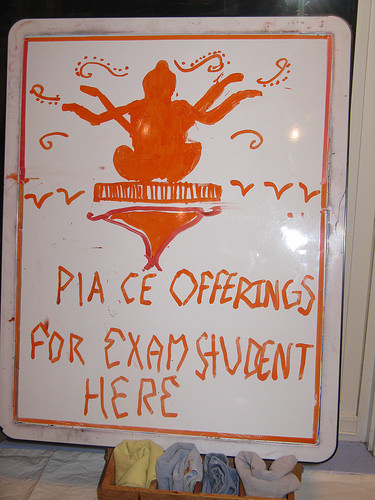 PLACE OFFERINGS
FOR EXAM STUDENT
HERE